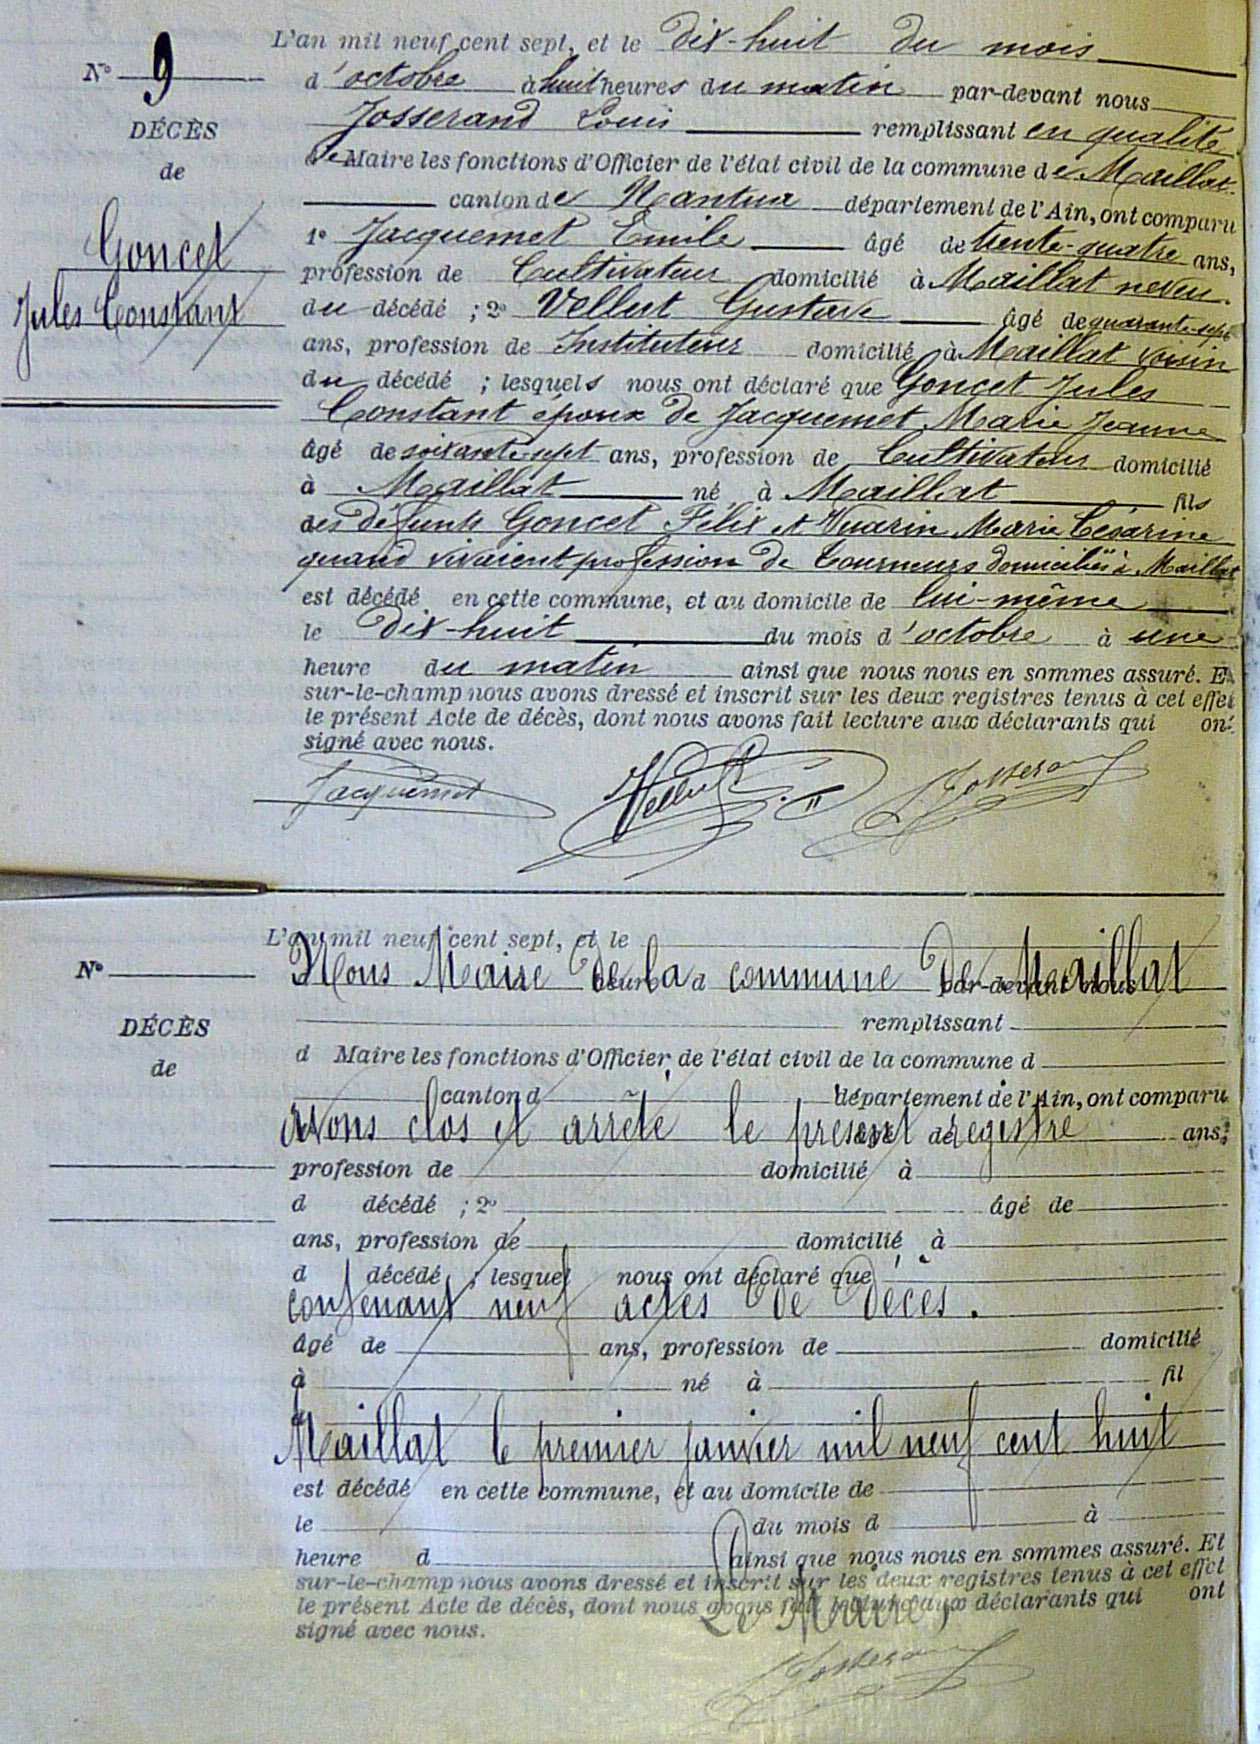 L'an mil neuf cent sept, et le dix-huit du mois
N° 9
d'octobre à huit heures du matin par-devant nous
Josserand Louis remplissant en qualité
DÉCÈS
de Maire les fonctions d'Officier de l'état civil de la commune de Maillat
de
canton de Nantua département de l'Ain, ont comparu
Goncet
Jules Constant
1° Jacquemet Emile âgé de trente-quatre ans,
profession de Cultivateur domicilié à Maillat neveu
du décédé ; 2° Vellut Gustave âgé de quarante-sept
ans, profession de Instituteur domicilié à Maillat voisin
du décédé ; lesquels nous ont déclaré que Goncet Jules
Constant époux de Jacquemet Marie Jeanne
âgé de soixante-sept ans, profession de Cultivateur domicilié
à Maillat né à Maillat fils
des défunts Goncet Félix et Vuarin Marie Césarine
quand vivaient profession de tourneurs domiciliés à Maillat
est décédé en cette commune, et au domicile de lui-même
le dix-huit du mois d'octobre à une
heure du matin ainsi que nous nous en sommes assuré. Et
sur-le-champ nous avons dressé et inscrit sur les deux registres tenus à cet effet
le présent Acte de décès, dont nous avons fait lecture aux déclarants qui ont
signé avec nous.
Jacquemet Vellut Josserand
L'an mil neuf cent sept, et le
N°
Nous Maire de la commune de Maillat
heures d par-devant nous
remplissant
DÉCÈS
d Maire les fonctions d'Officier de l'état civil de la commune d
de
canton d département de l'Ain, ont comparu
avons clos et arrêté le présent registre
âgé de ans,
profession de domicilié à
d décédé ; 2° âgé de
ans, profession de domicilié à
d décédé ; lesquel nous ont déclaré que
contenant neuf actes de décès.
âgé de ans, profession de domicilié
à né à fil
Maillat le premier janvier mil neuf cent huit
est décédé en cette commune, et au domicile de
le du mois d à
heure d ainsi que nous nous en sommes assuré. Et
sur-le-champ nous avons dressé et inscrit sur les deux registres tenus à cet effet
le présent Acte de décès, dont nous avons fait lecture aux déclarants qui ont
Le Maire,
signé avec nous.
Josserand